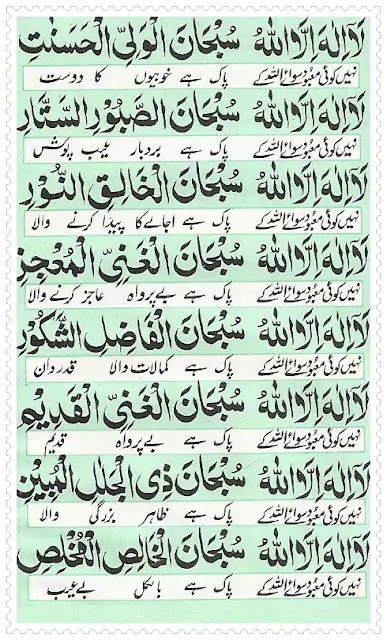 لَآ اِلٰهَ اِلَّا اللّٰهُ سُبْحَانَ الْوَلِيِّ الْحَسَنٰتِ
نہیں کوئی معبود سوائے اللہ کے پاک ہے خوبیوں کا دوست
لَآ اِلٰهَ اِلَّا اللّٰهُ سُبْحَانَ الصَّبُوْرِ السَّتَّارِ
نہیں کوئی معبود سوائے اللہ کے پاک ہے بردبار عیب پوش
لَآ اِلٰهَ اِلَّا اللّٰهُ سُبْحَانَ الْخَالِقِ النُّوْرِ
نہیں کوئی معبود سوائے اللہ کے پاک ہے اجالے کا پیدا کرنے والا
لَآ اِلٰهَ اِلَّا اللّٰهُ سُبْحَانَ الْغَنِيِّ الْمُعْجِزِ
نہیں کوئی معبود سوائے اللہ کے پاک ہے بے پرواہ عاجز کرنے والا
لَآ اِلٰهَ اِلَّا اللّٰهُ سُبْحَانَ الْفَاضِلِ الشَّكُوْرِ
نہیں کوئی معبود سوائے اللہ کے پاک ہے کمالات والا قدردان
لَآ اِلٰهَ اِلَّا اللّٰهُ سُبْحَانَ الْغَنِيِّ الْقَدِيْمِ
نہیں کوئی معبود سوائے اللہ کے پاک ہے بے پرواہ قدیم
لَآ اِلٰهَ اِلَّا اللّٰهُ سُبْحَانَ ذِى الْجَلٰلِ الْمُبِيْنِ
نہیں کوئی معبود سوائے اللہ کے پاک ہے ظاہر بزرگی والا
لَآ اِلٰهَ اِلَّا اللّٰهُ سُبْحَانَ الْخَالِصِ الْمُخْلِصِ
نہیں کوئی معبود سوائے اللہ کے پاک ہے بالکل بے عیب